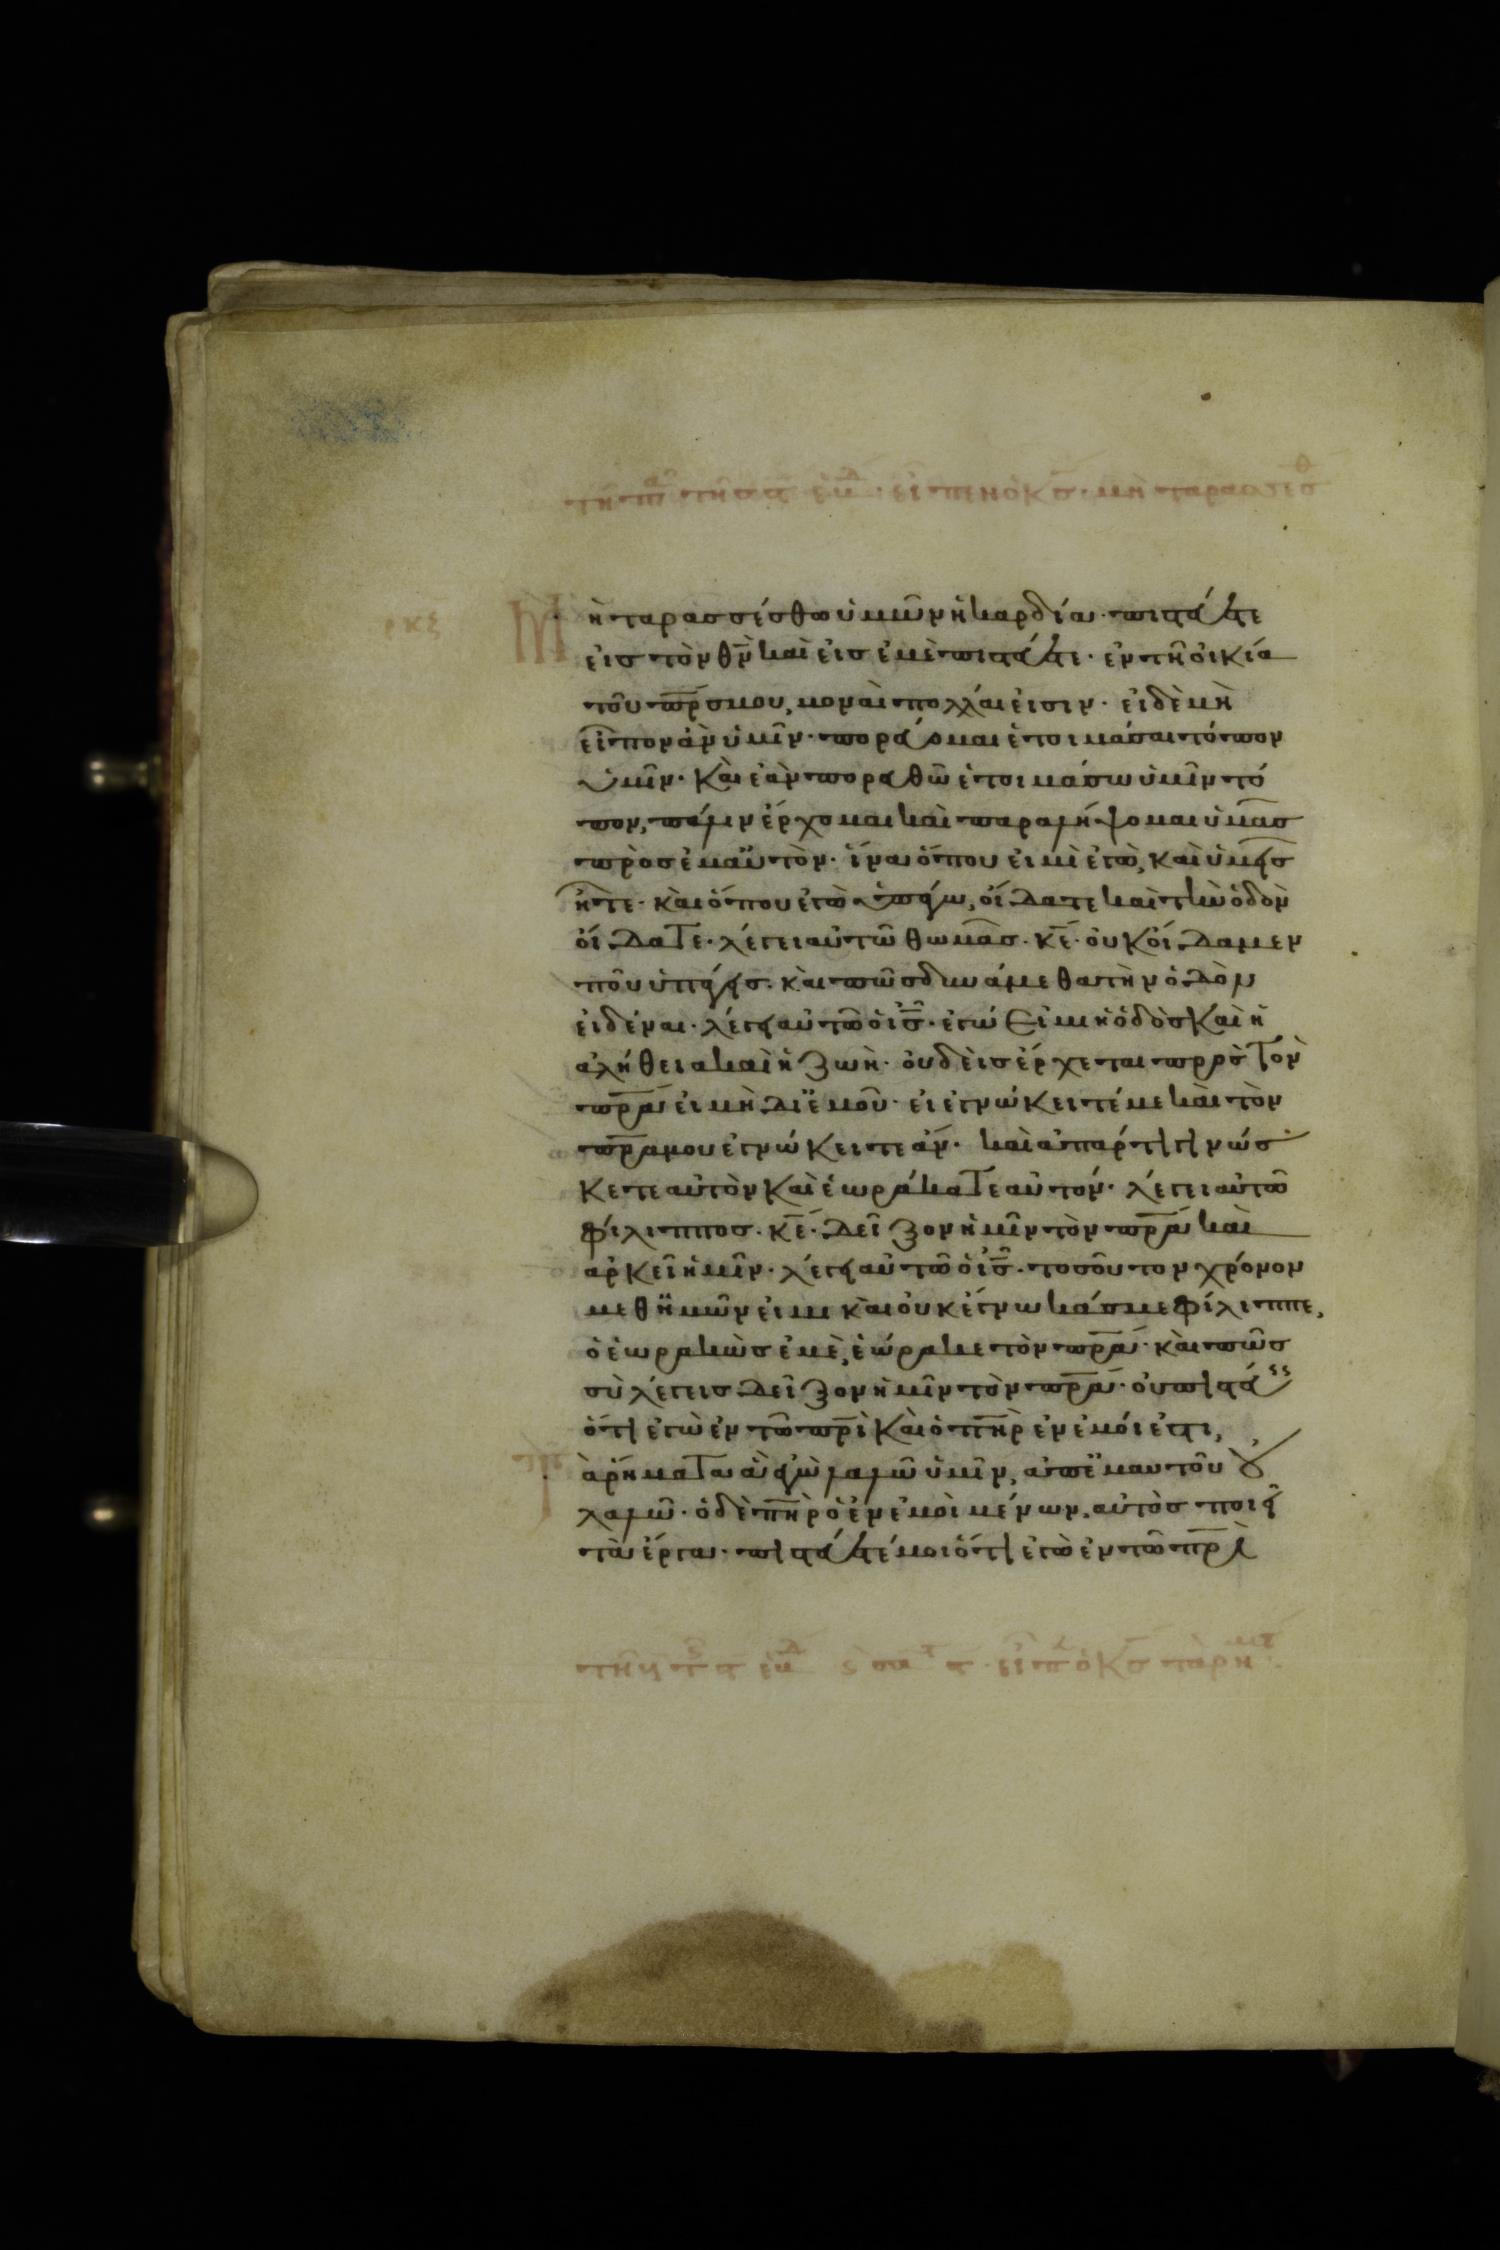 εἶπεν ὁ κς̅· μὴ ταρασσεσθ
ρκς
Μὴ ταρασσέσθω ὑμῶν ἡ καρδία· πιστεύετε
εἰς τὸν θν̅ καὶ εἰς ἐμὲ πιστεύετε· ἐν τῆ οἰκία
τοῦ πρ̅ς μου, μοναὶ πολλάι εἰσιν· εἰ δὲ μὴ
εἶπον ἂν ὑμῖν· πορεύομαι ἑτοιμάσαι τόπον
ὑμῖν· καὶ ἐὰν πορευθῶ ἑτοιμάσω ὑμῖν τό
πον, πάλιν ἔρχομαι καὶ παραλήψομαι ὑμᾶς
πρὸς ἐμαυτὸν· ἵνα ὅπου εἰμὶ ἐγὼ, καὶ ὑμεῖς
ἦτε· καὶ ὅπου ἐγὼ ὑπάγω, οἴδατε καὶ τὴν ὁδὸν
οἴδατε· λέγει αὐτῶ θωμᾶς· κε̅· οὐκ οἴδαμεν
ποῦ ὑπάγεις· καὶ πῶς δυνάμεθα τὴν ὁδὸν
εἰδέναι· λέγει αὐτῶ ὁ ις̅· ἐγώ εἰμι ἡ ὁδὸς καὶ ἡ
ἀλήθεια καὶ ἡ ζωὴ· οὐδεὶς ἔρχεται πρὸς τὸν
πρ̅α εἰ μὴ δι ἐμοῦ· εἰ ἐγνώκειτέ με καὶ τὸν
πρ̅α μου ἐγνώκειτε ἄν· καὶ ἀπάρτι γινώσ
κετε αὐτὸν καὶ ἑωράκατε αὐτόν· λέγει αὐτῶ
φίλιππος· κε̅· δεῖξον ἡμῖν τὸν πρ̅α καὶ
ἀρκεῖ ἡμῖν· λέγει αὐτῶ ὁ ις̅· τοσοῦτον χρόνον
μεθ ὑμῶν εἰμι καὶ οὐκ ἔγνωκάς με φίλιππε,
ὁ ἑωρακὼς ἐμὲ, ἑώρακε τὸν πρ̅α· καὶ πῶς
σὺ λέγεις δεῖξον ἡμῖν τὸν πρ̅α· οὐ πιστεύεις
ὅτι ἐγὼ ἐν τῶ πρ̅ὶ καὶ ὁ πη̅ρ ἐν ἐμόι ἐστι,
τὰ ῥήματα ἃ ἐγὼ λαλῶ ὑμῖν, ἀπ ἐμαυτοῦ οὐ
λαλῶ· ὁ δὲ πη̅ρ ὁ ἐν ἐμοὶ μένων, αὐτὸς ποιεῖ
τὰ ἔργα· πιστεύετέ μοι ὅτι ἐγὼ ἐν τῶ πρ̅ὶ
εἶπ ὁ κς̅ τὰ ῥήμτ